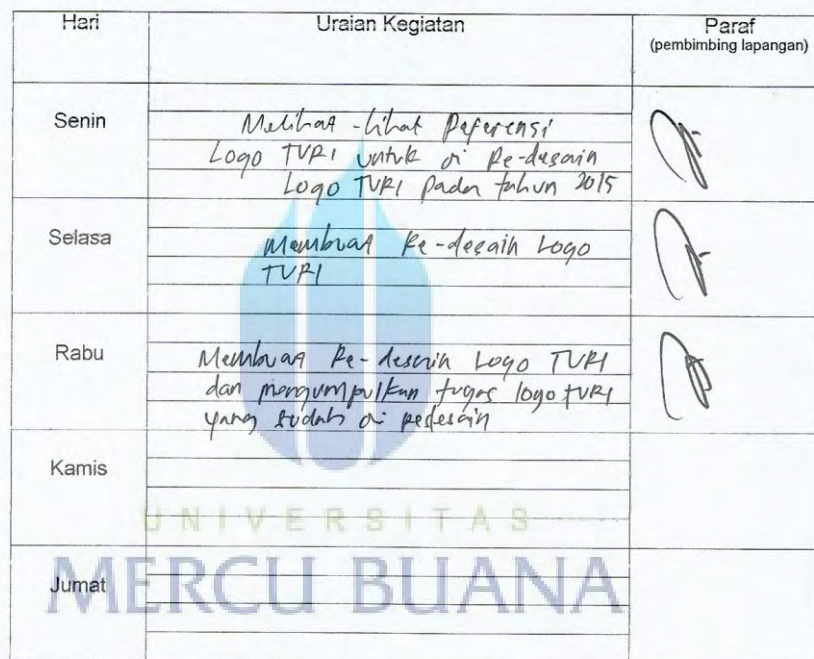 Hari Uraian Kegiatan Paraf
(pembimbing lapangan)
Senin
Melihat-lihat Referensi
Logo TVRI untuk di Re-desain
Logo TVRI pada tahun 2015
Selasa
Membuat Re-desain Logo
TVRI
Rabu
Membuat Re-desain Logo TVRI
dan mengumpulkan tugas logo TVRI
yang sudah di redesain
Kamis
UNIVERSITAS
MERCU BUANA
Jumat